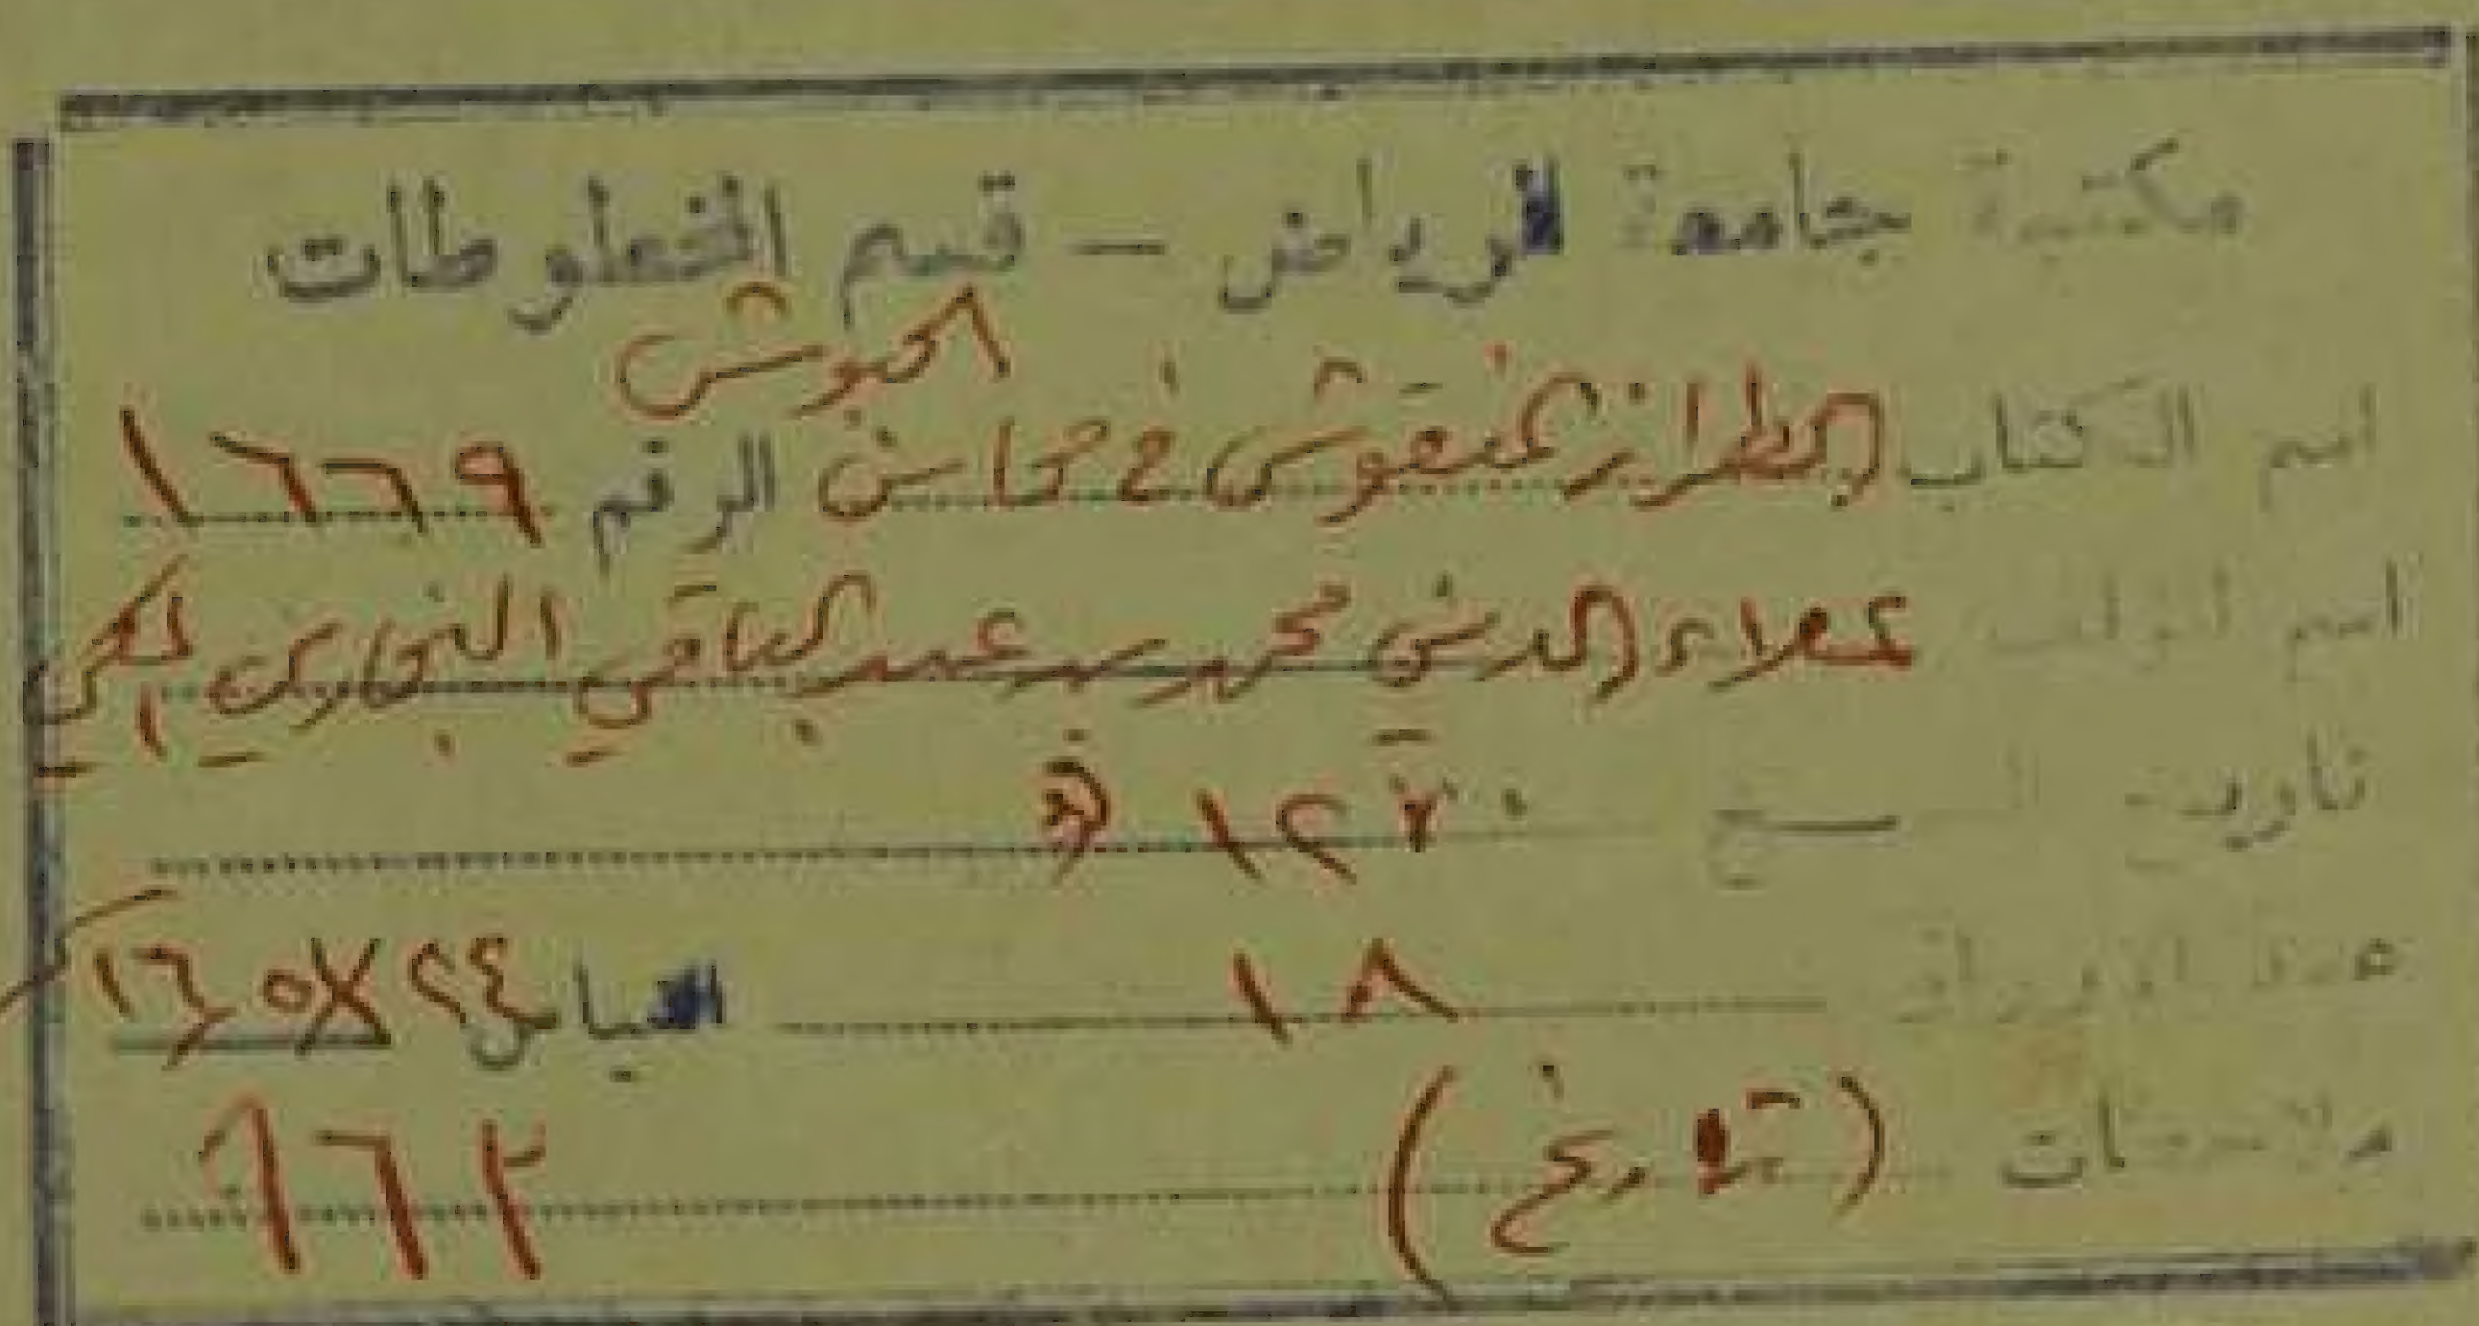 مكتبة جامعة الرياض – قسم المخطوطات
اسم الكتاب الطراز المنقوش في محاسن الحبوش الرقم ١٦٦٩
اسم المؤلف علاء الدين محمد بن عبد الباقي البخاري المكي
تاريخ النسخ ١٢٧٠
عدد الأوراق ١٨ القياس ٢٤
ملاحظات (تاريخ) ٦٦٢